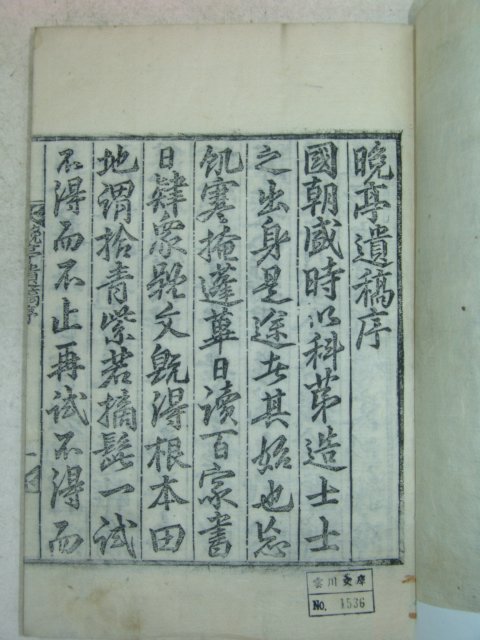 晩亭遺稿序
國朝盛時以科第造士士
之出身是途者其始也忘
飢寒掩蓬蓽日讀百家書
日肄衆雜文旣得根本田
地謂拾靑紫若摘髭一試
不得而不止再試不得而
晩亭遺稿序
一
雲川文庫
No. 1536